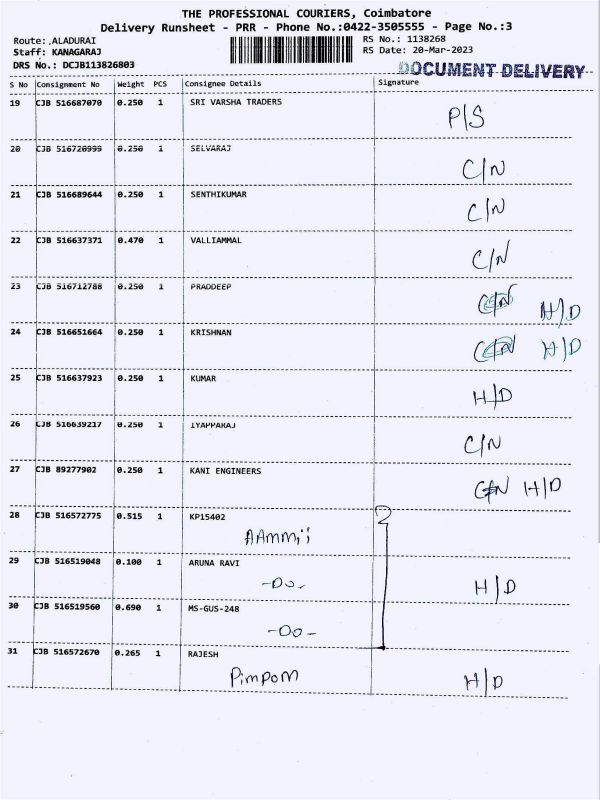 THE PROFESSIONAL COURIERS, Coimbatore
Delivery Runsheet - PRR - Phone No.:0422-3505555 - Page No.:3
Route:,ALADURAI RS No.: 1138268
Staff: KANAGARAJ RS Date: 20-Mar-2023
DRS No.: DCJB113826803 DOCUMENT DELIVERY
S No Consignment No Weight PCS Consignee Details Signature
19 CJB 516687070 0.250 1 SRI VARSHA TRADERS P/S
20 CJB 516720999 0.250 1 SELVARAJ C/N
21 CJB 516689644 0.250 1 SENTHIKUMAR C/N
22 CJB 516637371 0.470 1 VALLIAMMAL C/N
23 CJB 516712788 0.250 1 PRADDEEP C/N H/D
24 CJB 516651664 0.250 1 KRISHNAN C/N H/D
25 CJB 516637923 0.250 1 KUMAR H/D
26 CJB 516639217 0.250 1 IYAPPARAJ C/N
27 CJB 89277902 0.250 1 KANI ENGINEERS C/N H/D
28 CJB 516572775 0.515 1 KP15402
AAmmii
29 CJB 516519048 0.100 1 ARUNA RAVI
-Do- H/D
30 CJB 516519560 0.690 1 MS-GUS-248
-Do-
31 CJB 516572670 0.265 1 RAJESH
Pimpom H/D